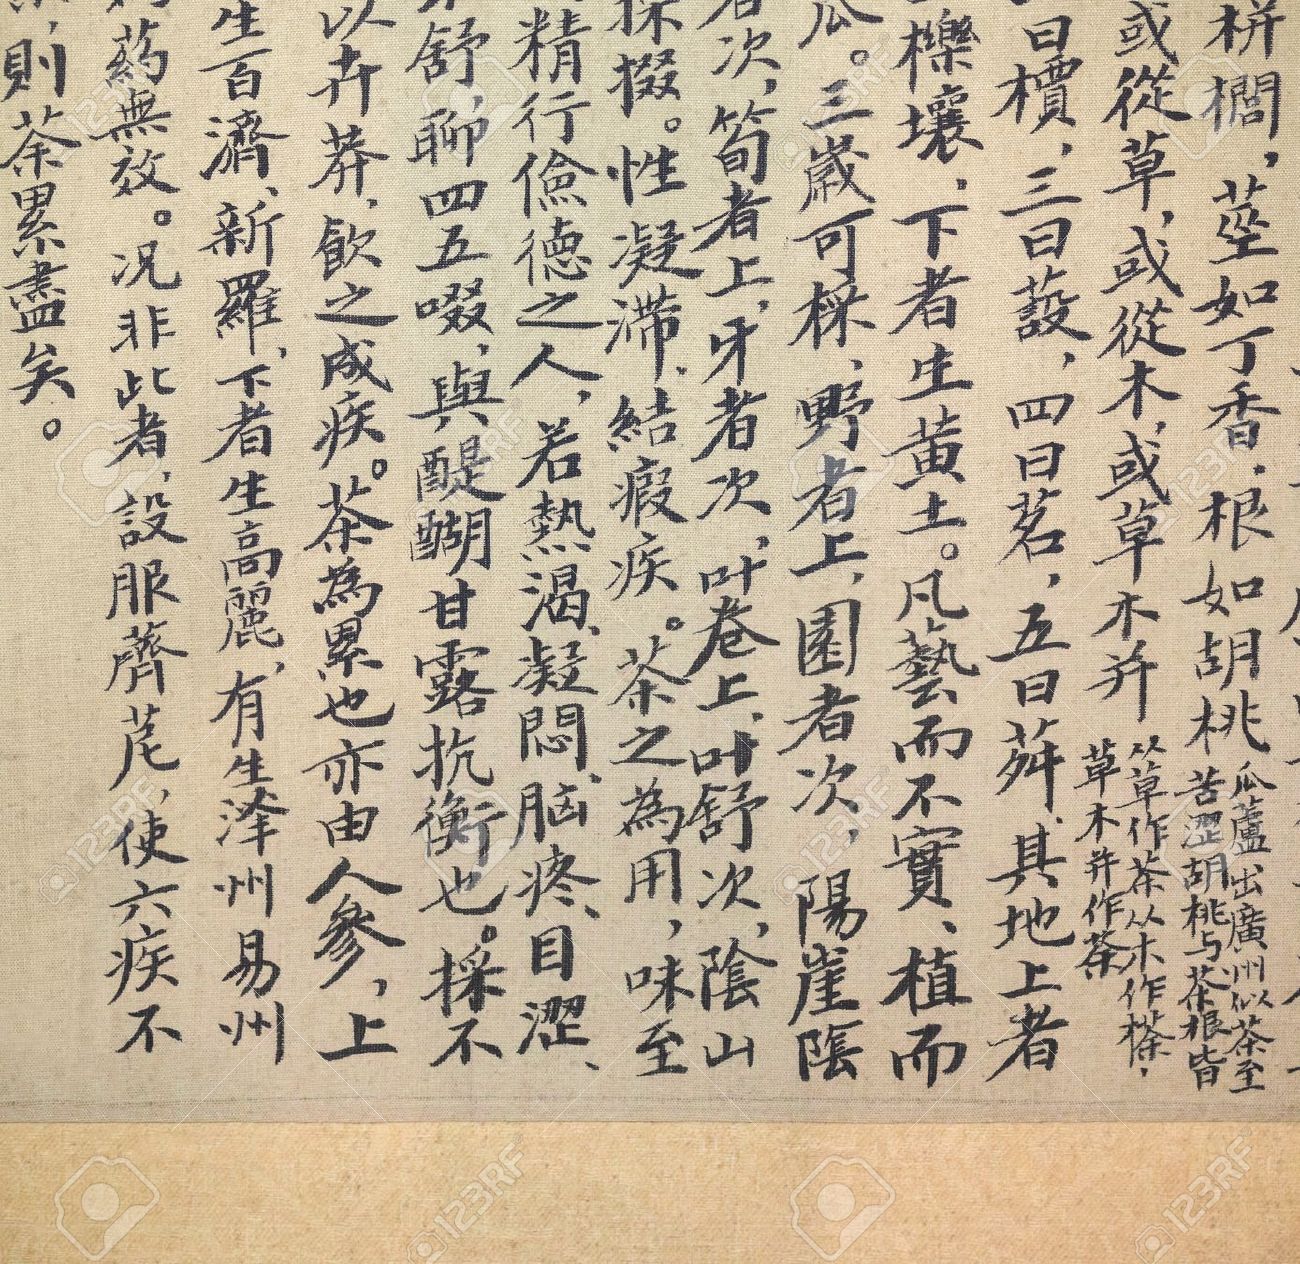 栟櫚，莖如丁香，根如胡桃
瓜蘆出廣州似茶至
苦澀胡桃与茶根皆
或從草，或從木，或草木并
從草作茶從木作搽，
草木并作荼
曰檟，三曰蔎，四曰茗，五曰荈，其地上者
櫟壤，下者生黄土。凡藝而不實、植而
瓜。三歲可採、野者上，園者次，陽崖陰
者次，筍者上，牙者次，叶卷上，叶舒次，陰山
採掇。性凝滯、結瘕疾。茶之為用，味至
精行儉德之人，若熱渴、凝悶、脑疼、目澀、
舒，聊四五啜，與醍醐甘露抗衡也。採不
以卉莽，飲之成疾。茶為累也亦由人參，上
生百濟、新羅，下者生高麗，有生泽州易州
药無效。况非此者，設服薺苨，使六疾不
則茶累盡矣。